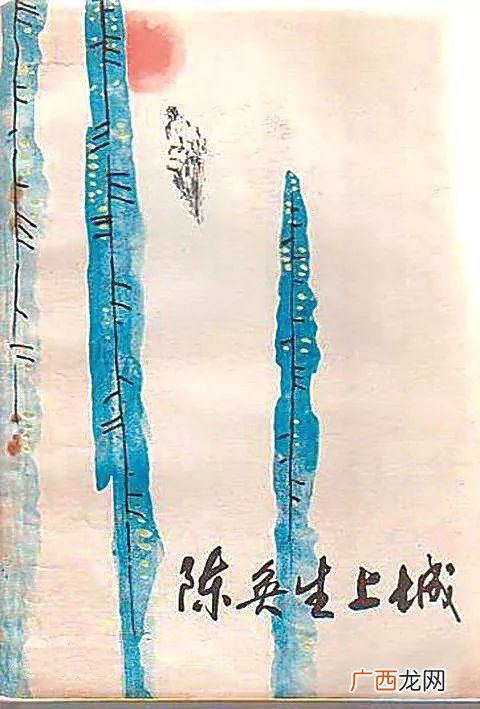 陈奂生上城
广西龙网